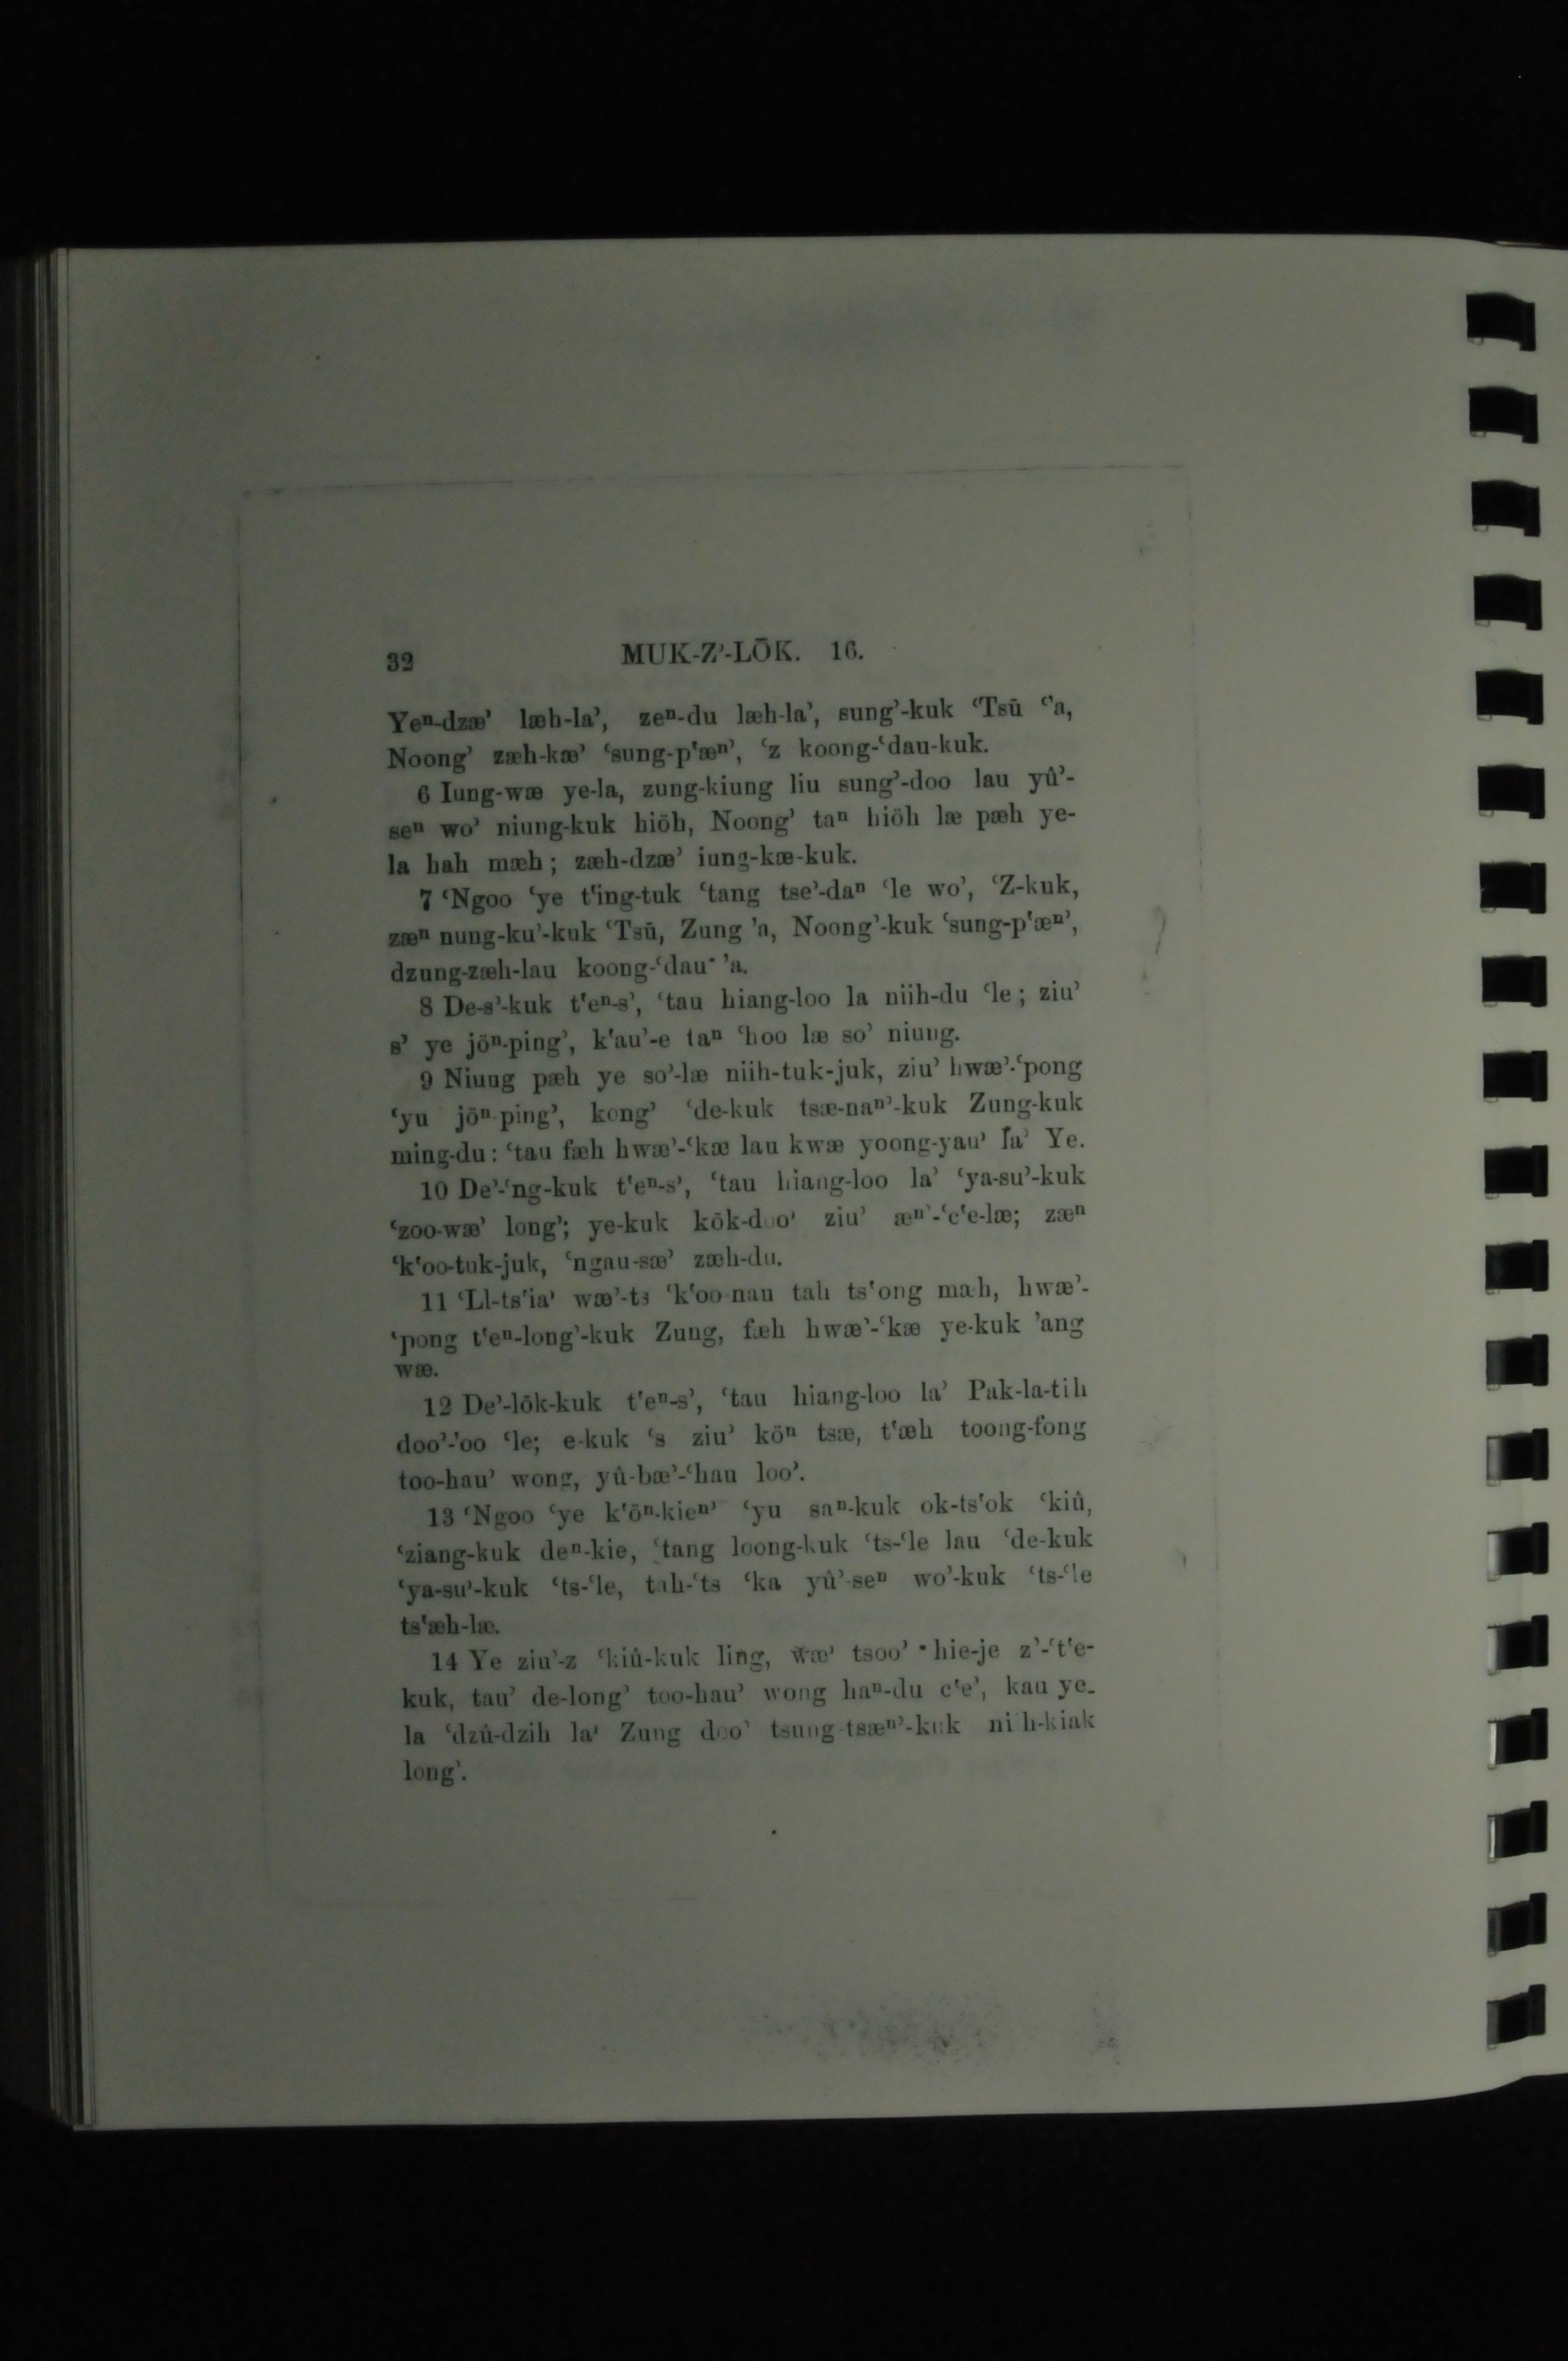 32 MUK-Z’-LŌK. 16.
Yeⁿ-dzæ’ læh-la’, zeⁿ-du læh-la’, sung’-kuk ‘Tsū ‘’a,
Noong’ zæh-kæ’ ‘sung-p‘æⁿ’, ‘z koong-‘dau-kuk.
6 Iung-wæ ye-la, zung-kiung liu sung’-doo lau yû’-
seⁿ wo’ niung-kuk hiöh, Noong’ taⁿ hiöh læ pæh ye-
la hah mæh; zæh-dzæ’ iung-kæ-kuk.
7 ‘Ngoo ‘ye t‘ing-tuk ‘tang tse’-daⁿ ‘le wo’, ‘Z-kuk,
zæⁿ nung-ku’-kuk ‘Tsū, Zung ’a, Noong’-kuk ‘sung-p‘æⁿ’,
dzung-zæh-lau koong-‘dau ’a.
8 De-s’-kuk t‘eⁿ-s’, ‘tau hiang-loo la niih-du ‘le; ziu’
s’ ye jöⁿ-ping’, k‘au’-e taⁿ ‘hoo læ so’ niung.
9 Niung pæh ye so’-læ niih-tuk-juk, ziu’ hwæ’-‘pong
‘yu jöⁿ-ping’, kong’ ‘de-kuk tsæ-naⁿ’-kuk Zung-kuk
ming-du: ‘tau fæh hwæ’-‘kæ lau kwæ yoong-yau’ la’ Ye.
10 De’-‘ng-kuk t‘eⁿ-s’, ‘tau hiang-loo la’ ‘ya-su’-kuk
‘zoo-wæ’ long’; ye-kuk kōk-doo’ ziu’ æⁿ’-‘c‘e-læ; zæⁿ
‘k‘oo-tuk-juk, ‘ngau-sæ’ zæh-du.
11 ‘Ll-ts‘ia’ wæ’-ts ‘k‘oo-nau tah ts‘ong mæh, hwæ’-
‘pong t‘eⁿ-long’-kuk Zung, fæh hwæ’-‘kæ ye-kuk ’ang
wæ.
12 De’-lōk-kuk t‘eⁿ-s’, ‘tau hiang-loo la’ Pak-la-tih
doo’-’oo ‘le; e-kuk ‘s ziu’ köⁿ tsæ, t‘æh toong-fong
too-hau’ wong, yû-bæ’-‘hau loo’.
13 ‘Ngoo ‘ye k‘öⁿ-kieⁿ’ ‘yu saⁿ-kuk ok-ts‘ok ‘kiû,
‘ziang-kuk deⁿ-kie, ‘tang loong-kuk ‘ts-‘le lau ‘de-kuk
‘ya-su’-kuk ‘ts-‘le, tah-‘ts ‘ka yû’-seⁿ wo’-kuk ‘ts-‘le
ts‘æh-læ.
14 Ye ziu’-z ‘kiû-kuk ling, wæ’ tsoo’ hie-je z’-‘t‘e-
kuk, tau’ de-long’ too-hau’ wong haⁿ-du c‘e’, kau ye-
la ‘dzû-dzih la’ Zung doo’ tsung-tsæⁿ’-kuk niih-kiak
long’.